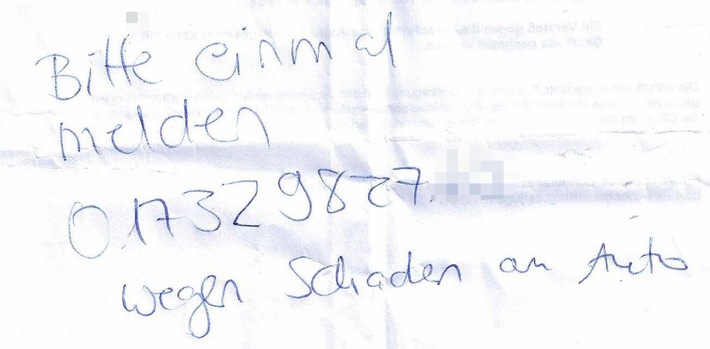 Bitte einmal
melden
017329827
wegen Schaden am Auto